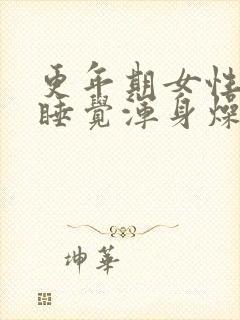 更年期女性
睡覺渾身燥
坤華